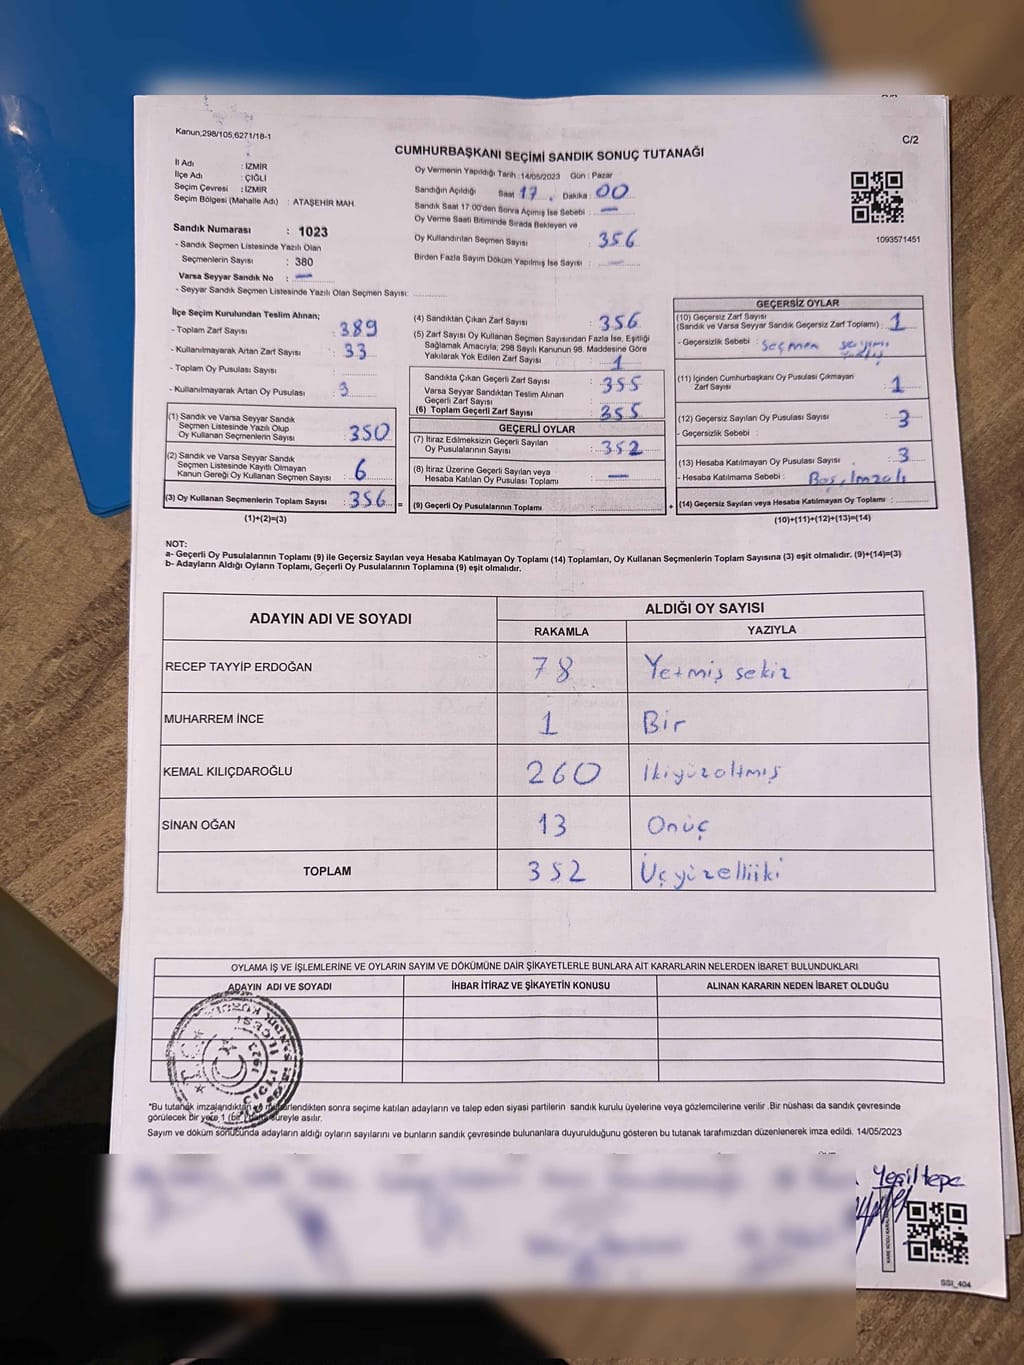 Kanun;298/105,6271/18-1
C/2
CUMHURBAŞKANI SEÇİMİ SANDIK SONUÇ TUTANAĞI
İl Adı : İZMİR
İlçe Adı : ÇİĞLİ
Seçim Çevresi : İZMİR
Seçim Bölgesi (Mahalle Adı) : ATAŞEHİR MAH.
Sandık Numarası : 1023
- Sandık Seçmen Listesinde Yazılı Olan
Seçmenlerin Sayısı : 380
Varsa Seyyar Sandık No : —
- Seyyar Sandık Seçmen Listesinde Yazılı Olan Seçmen Sayısı:
Oy Vermenin Yapıldığı Tarih :14/05/2023 Gün : Pazar
Sandığın Açıldığı Saat 17. Dakika : 00
Sandık Saat 17:00'den Sonra Açılmış İse Sebebi : —
Oy Verme Saati Bitiminde Sırada Bekleyen ve
Oy Kullandırılan Seçmen Sayısı : 356
Birden Fazla Sayım Döküm Yapılmış İse Sayısı : —
1093571451
İlçe Seçim Kurulundan Teslim Alınan;
- Toplam Zarf Sayısı : 389
- Kullanılmayarak Artan Zarf Sayısı : 33
- Toplam Oy Pusulası Sayısı :
- Kullanılmayarak Artan Oy Pusulası : 3
(1) Sandık ve Varsa Seyyar Sandık
Seçmen Listesinde Yazılı Olup
Oy Kullanan Seçmenlerin Sayısı : 350
(2) Sandık ve Varsa Seyyar Sandık
Seçmen Listesinde Kayıtlı Olmayan
Kanun Gereği Oy Kullanan Seçmen Sayısı : 6
(3) Oy Kullanan Seçmenlerin Toplam Sayısı : 356 =
(1)+(2)=(3)
(4) Sandıktan Çıkan Zarf Sayısı : 356
(5) Zarf Sayısı Oy Kullanan Seçmen Sayısından Fazla İse, Eşitliği
Sağlamak Amacıyla; 298 Sayılı Kanunun 98. Maddesine Göre
Yakılarak Yok Edilen Zarf Sayısı : 1
Sandıkta Çıkan Geçerli Zarf Sayısı : 355
Varsa Seyyar Sandıktan Teslim Alınan
Geçerli Zarf Sayısı :
(6) Toplam Geçerli Zarf Sayısı : 355
GEÇERLİ OYLAR
(7) İtiraz Edilmeksizin Geçerli Sayılan
Oy Pusulalarının Sayısı : 352
(8) İtiraz Üzerine Geçerli Sayılan veya
Hesaba Katılan Oy Pusulası Toplamı : —
(9) Geçerli Oy Pusulalarının Toplamı : +
GEÇERSİZ OYLAR
(10) Geçersiz Zarf Sayısı
(Sandık ve Varsa Seyyar Sandık Geçersiz Zarf Toplamı) : 1
- Geçersizlik Sebebi : Seçmen
(11) İçinden Cumhurbaşkanı Oy Pusulası Çıkmayan
Zarf Sayısı : 1
(12) Geçersiz Sayılan Oy Pusulası Sayısı : 3
- Geçersizlik Sebebi :
(13) Hesaba Katılmayan Oy Pusulası Sayısı : 3
- Hesaba Katılmama Sebebi : Boş, İmzalı
(14) Geçersiz Sayılan veya Hesaba Katılmayan Oy Toplamı :
(10)+(11)+(12)+(13)=(14)
NOT:
a- Geçerli Oy Pusulalarının Toplamı (9) ile Geçersiz Sayılan veya Hesaba Katılmayan Oy Toplamı (14) Toplamları, Oy Kullanan Seçmenlerin Toplam Sayısına (3) eşit olmalıdır. (9)+(14)=(3)
b- Adayların Aldığı Oyların Toplamı, Geçerli Oy Pusulalarının Toplamına (9) eşit olmalıdır.
ADAYIN ADI VE SOYADI ALDIĞI OY SAYISI
RAKAMLA YAZIYLA
RECEP TAYYİP ERDOĞAN 78 Yetmiş sekiz
MUHARREM İNCE 1 Bir
KEMAL KILIÇDAROĞLU 260 İkiyüzaltmış
SİNAN OĞAN 13 Onüç
TOPLAM 352 Üçyüzelliiki
OYLAMA İŞ VE İŞLEMLERİNE VE OYLARIN SAYIM VE DÖKÜMÜNE DAİR ŞİKAYETLERLE BUNLARA AİT KARARLARIN NELERDEN İBARET BULUNDUKLARI
ADAYIN ADI VE SOYADI İHBAR İTİRAZ VE ŞİKAYETİN KONUSU ALINAN KARARIN NEDEN İBARET OLDUĞU
*Bu tutanak imzalandıktan ve mühürlendikten sonra seçime katılan adayların ve talep eden siyasi partilerin sandık kurulu üyelerine veya gözlemcilerine verilir .Bir nüshası da sandık çevresinde
görülecek bir yere 1 (bir) süreyle asılır.
Sayım ve döküm sonucunda adayların aldığı oyların sayılarını ve bunların sandık çevresinde bulunanlara duyurulduğunu gösteren bu tutanak tarafımızdan düzenlenerek imza edildi. 14/05/2023
Yeşiltepe
SSI_404